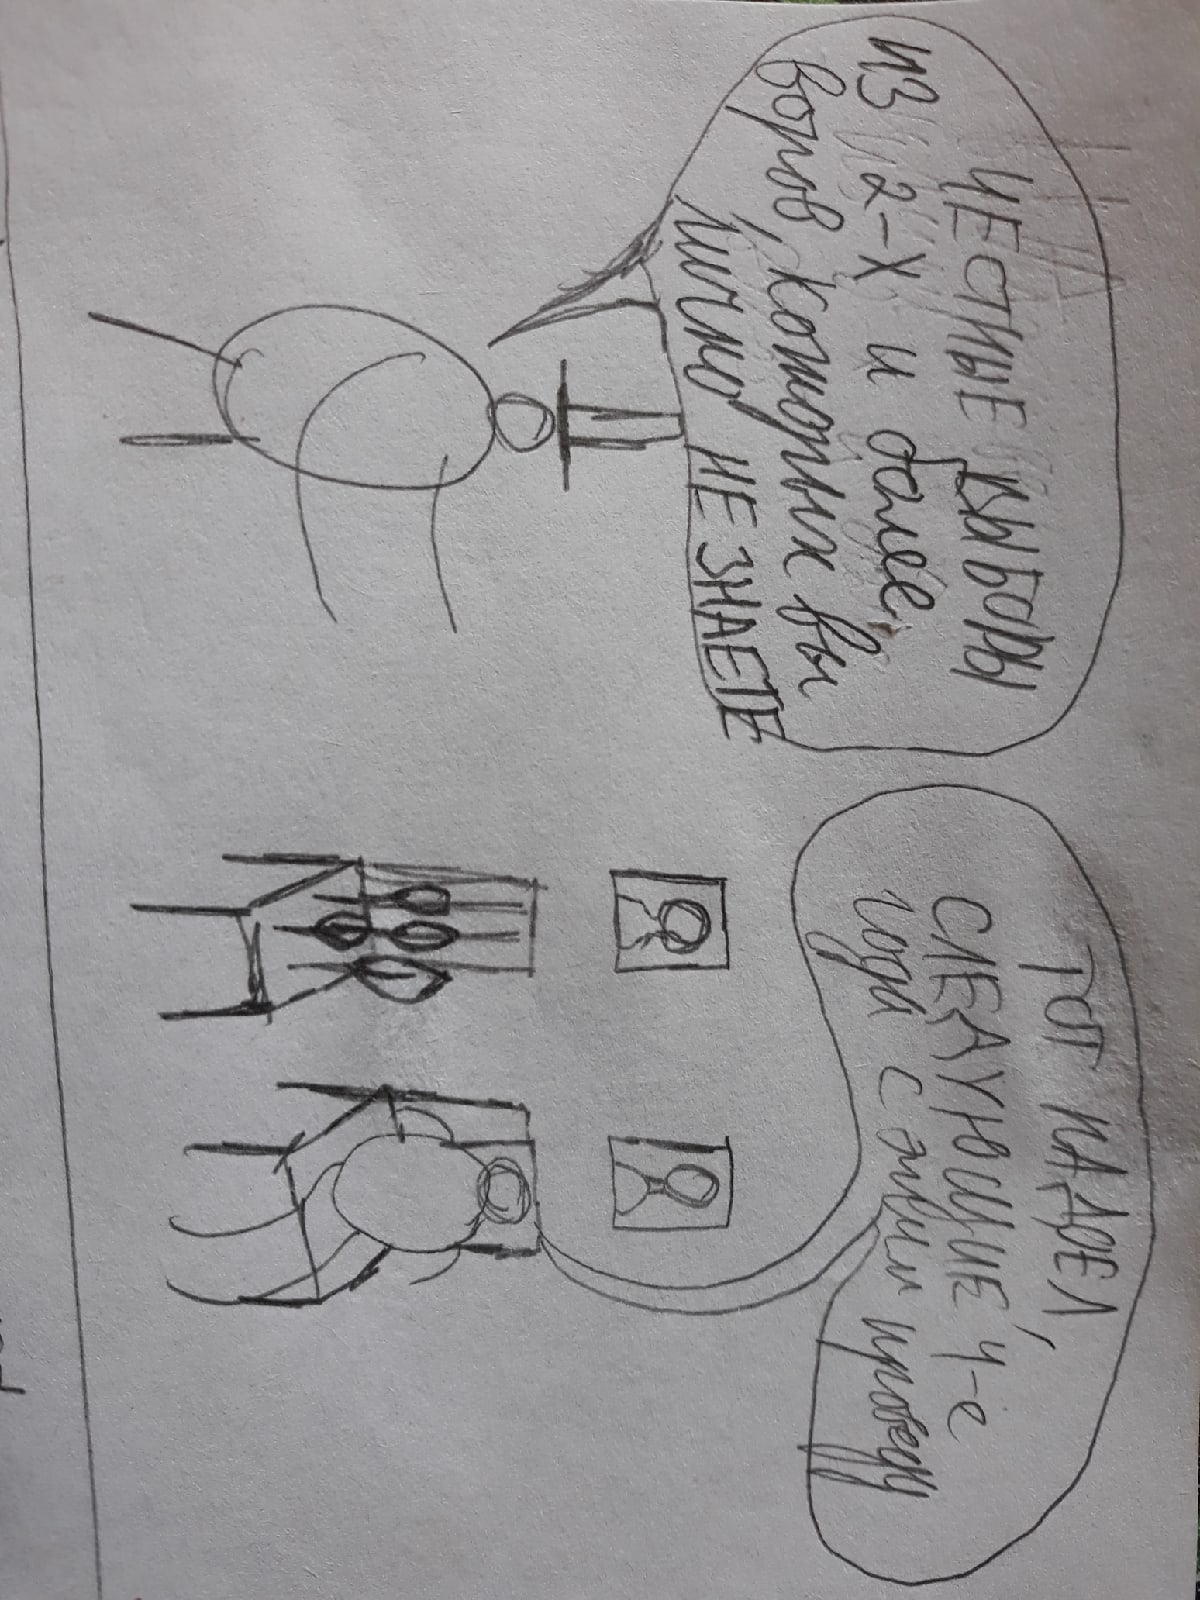 ЧЕСТНЫЕ ВЫБОРЫ
из 2-х и более
воров, которых вы
лично НЕ ЗНАЕТЕ
ТОТ НАДОЕЛ,
СЛЕДУЮЩИЕ 4-е
года с этим проведу